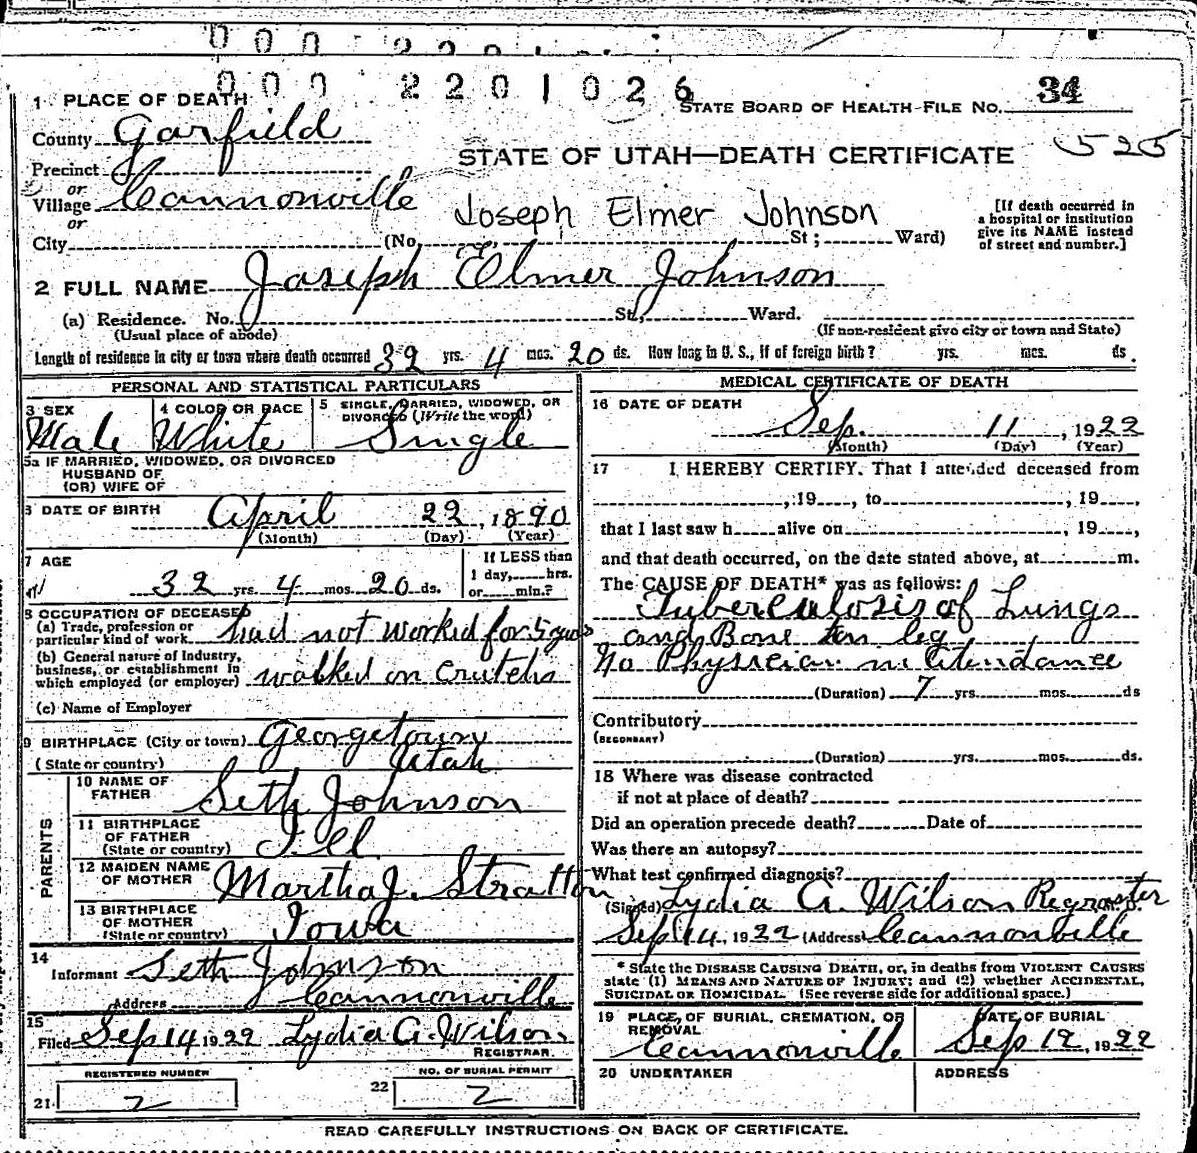 000 2201026
STATE BOARD OF HEALTH-FILE NO. 34
1 PLACE OF DEATH
County Garfield
STATE OF UTAH—DEATH CERTIFICATE 525
Precinct
or
Village Cannonville
or
Joseph Elmer Johnson
[If death occurred in
a hospital or institution
give its NAME instead
of street and number.]
City (No. St ; Ward)
2 FULL NAME Joseph Elmer Johnson
(a) Residence. No. St, Ward.
(Usual place of abode) (If non-resident give city or town and State)
Length of residence in city or town where death occurred 32 yrs. 4 mos. 20 ds. How long in U. S., if of foreign birth? yrs. mos. ds.
PERSONAL AND STATISTICAL PARTICULARS
3 SEX Male
4 COLOR OR RACE White
5 SINGLE, MARRIED, WIDOWED, OR
DIVORCED (Write the word) Single
5a IF MARRIED, WIDOWED, OR DIVORCED
HUSBAND OF
(OR) WIFE OF
6 DATE OF BIRTH April 22, 1890
(Month) (Day) (Year)
7 AGE
32 yrs. 4 mos. 20 ds.
If LESS than
1 day, hrs.
or min.?
8 OCCUPATION OF DECEASED
(a) Trade, profession or
particular kind of work had not worked for 5 years
(b) General nature of Industry,
business, or establishment in
which employed (or employer) walked on Crutchs
(c) Name of Employer
9 BIRTHPLACE (City or town) Georgetown
(State or country) Utah
PARENTS
10 NAME OF
FATHER Seth Johnson
11 BIRTHPLACE
OF FATHER
(State or country) Ill
12 MAIDEN NAME
OF MOTHER Martha J. Stratton
13 BIRTHPLACE
OF MOTHER
(State or country) Iowa
14
Informant Seth Johnson
Address Cannonville
15
Filed Sep 14 1922 Lydia A. Wilson
REGISTRAR
REGISTERED NUMBER
21. 2
NO. OF BURIAL PERMIT
22 2
MEDICAL CERTIFICATE OF DEATH
16 DATE OF DEATH
Sep. 11, 1922
(Month) (Day) (Year)
17 I HEREBY CERTIFY. That I attended deceased from
, 19 , to , 19 ,
that I last saw h alive on , 19 ,
and that death occurred, on the date stated above, at m.
The CAUSE OF DEATH* was as follows:
Tuberculosis of Lungs
and Bone in leg
No Physician in Attendance
(Duration) 7 yrs. mos. ds
Contributory
(SECONDARY)
(Duration) yrs. mos. ds.
18 Where was disease contracted
if not at place of death?
Did an operation precede death? Date of
Was there an autopsy?
What test confirmed diagnosis?
(Signed) Lydia A. Wilson Regraster
Sep 14, 1922 (Address) Cannonville
* State the DISEASE CAUSING DEATH, or, in deaths from VIOLENT CAUSES
state (1) MEANS AND NATURE OF INJURY; and (2) whether ACCIDENTAL,
SUICIDAL OR HOMICIDAL. (See reverse side for additional space.)
19 PLACE, OF BURIAL, CREMATION, OR
REMOVAL
Cannonville
DATE OF BURIAL
Sep 12, 1922
20 UNDERTAKER
ADDRESS
READ CAREFULLY INSTRUCTIONS ON BACK OF CERTIFICATE.